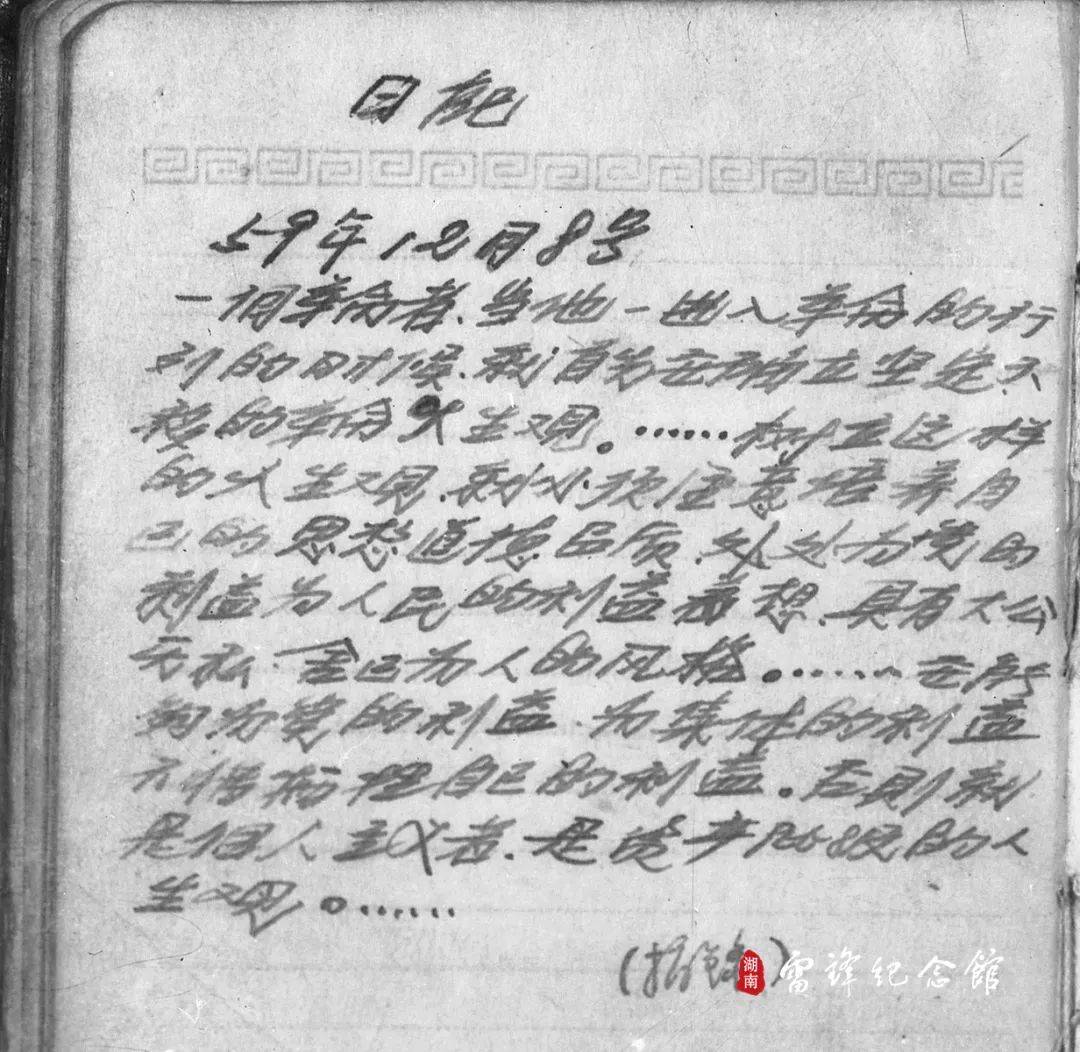 日记
59年12月8号
一个革命者、当他一进入革命的行
列的时候、就首先要确立坚定不
移的革命人生观。……树立这样
的人生观、就必须注意培养自
己的思想道德品质、处处为党的
利益为人民的利益着想、具有大公
无私、舍己为人的风格。……要能
够为党的利益、为集体的利益
不惜牺牲自己的利益。否则就
是个人主义者、是资产阶级的人
生观。……
(摘录)
湖南 雷锋纪念館